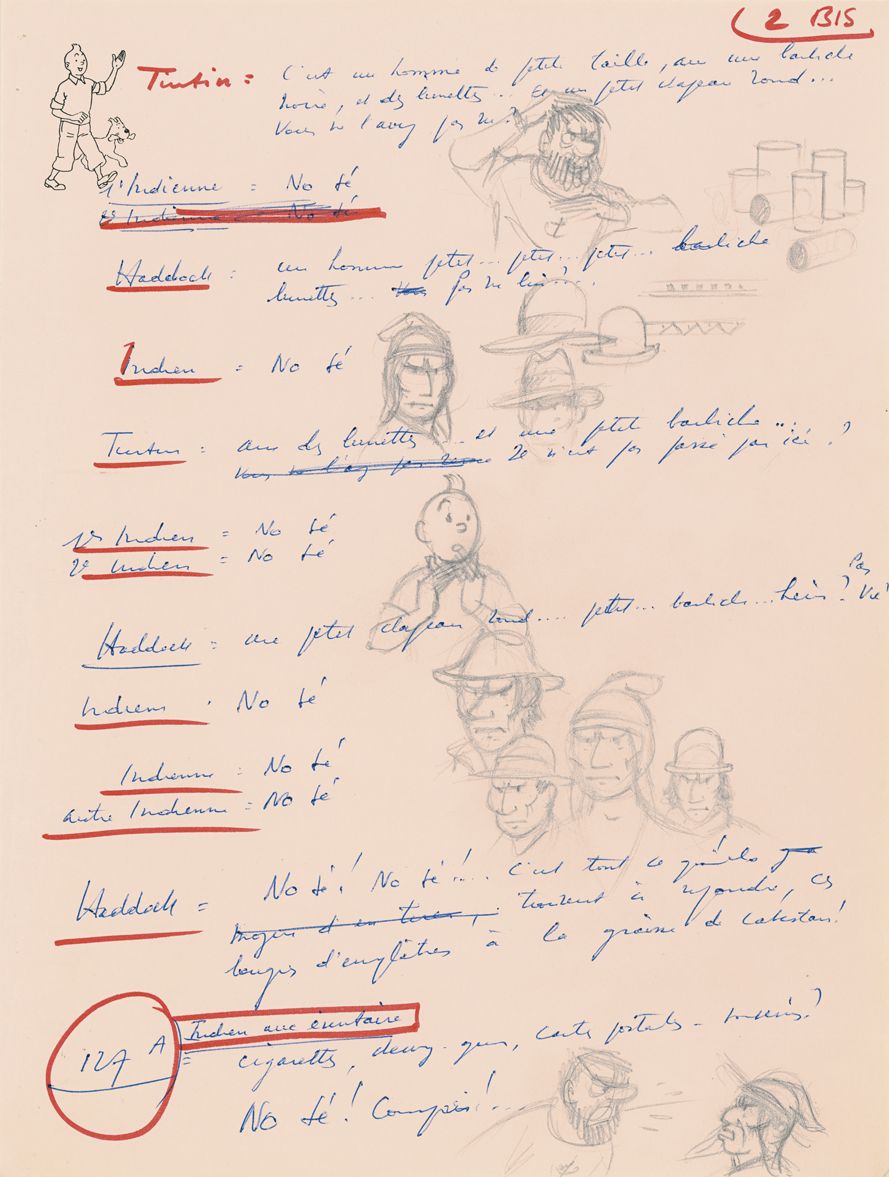 2 BIS
Tintin = C'est un homme de petite taille, avec une barbiche
noire, et des lunettes... Et un petit chapeau rond...
Vous ne l'avez pas vu?
1e Indienne = No sé
2e Indienne = No sé
Haddock = un homme petit... petit... petit... barbiche
lunettes... Vous pas vu lui?...
Indien = No sé
Tintin = avec des lunettes... et une petite barbiche...
Vous ne l'avez pas Il n'est pas passé par ici?
1er Indien = No sé
2e Indien = No sé
Pas
Haddock = un petit chapeau rond.... petite... barbiche... hein? Vu?
Indiens = No sé
Indienne = No sé
autre Indienne = No sé
Haddock = No sé! No sé!... C'est tout ce qu'ils
trouvent à répondre, ces
bougres d'emplâtres à la graisse de cabestan!
127 A
Indien avec éventaire
= cigarettes, chewing-gum, carte postales - souvenirs?
No sé! Compris!...